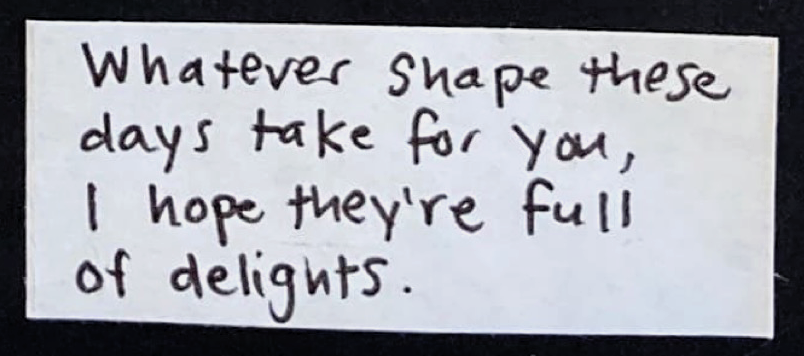 Whatever shape these
days take for you,
I hope they're full
of delights.